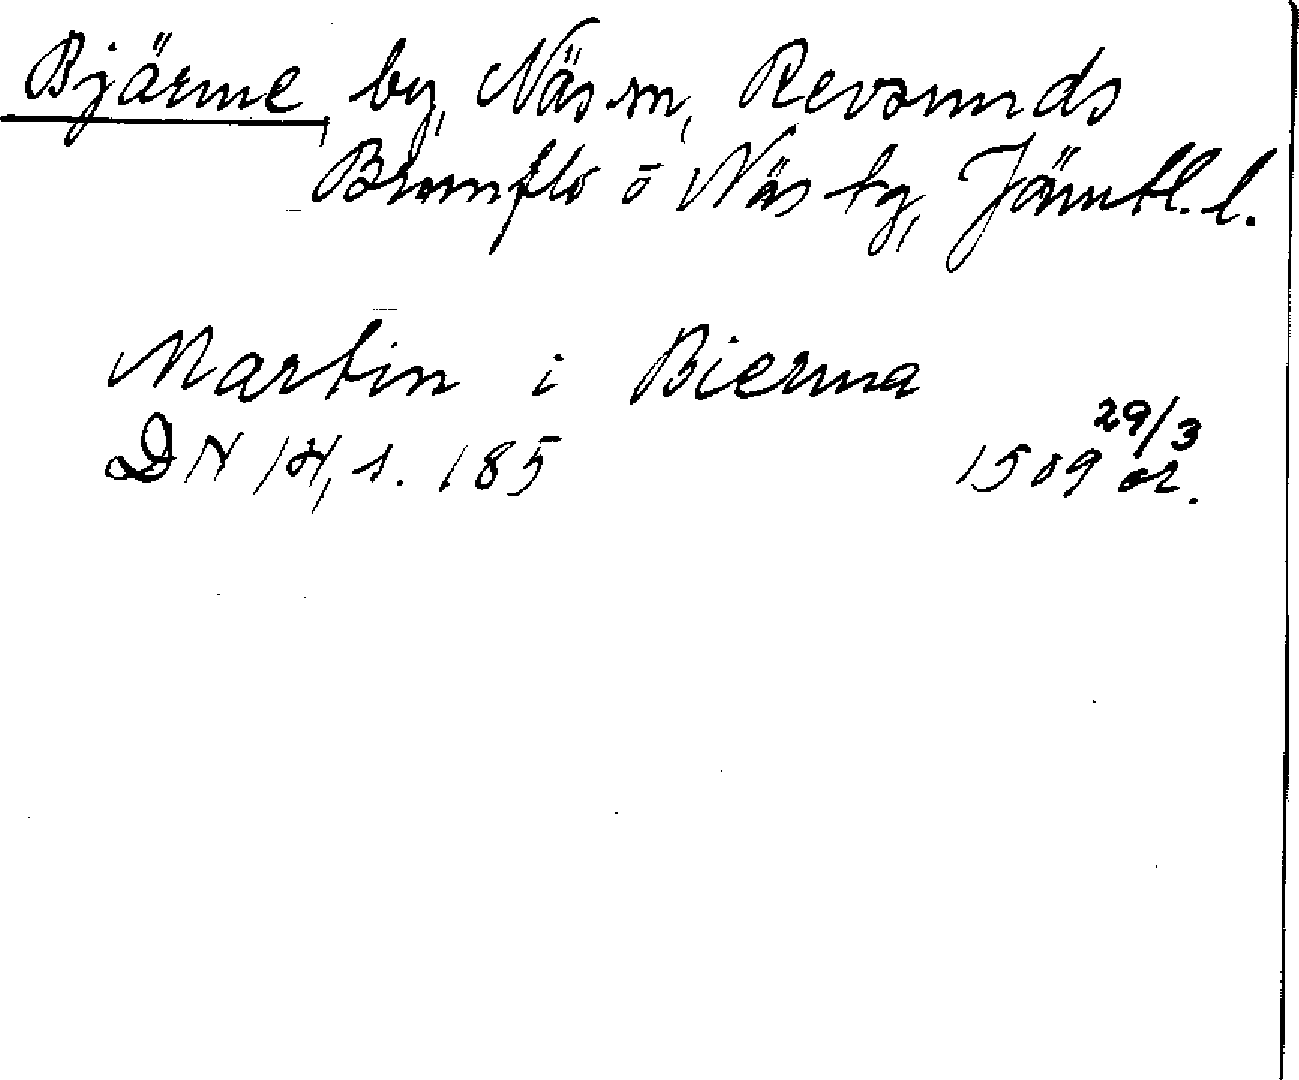 Bjärme, by, Näs sn, Revsunds
Brunflo o Näs tg, Jämtl. l.
Martin i Bierma
29/3
DN 14, s. 185 1509 or.